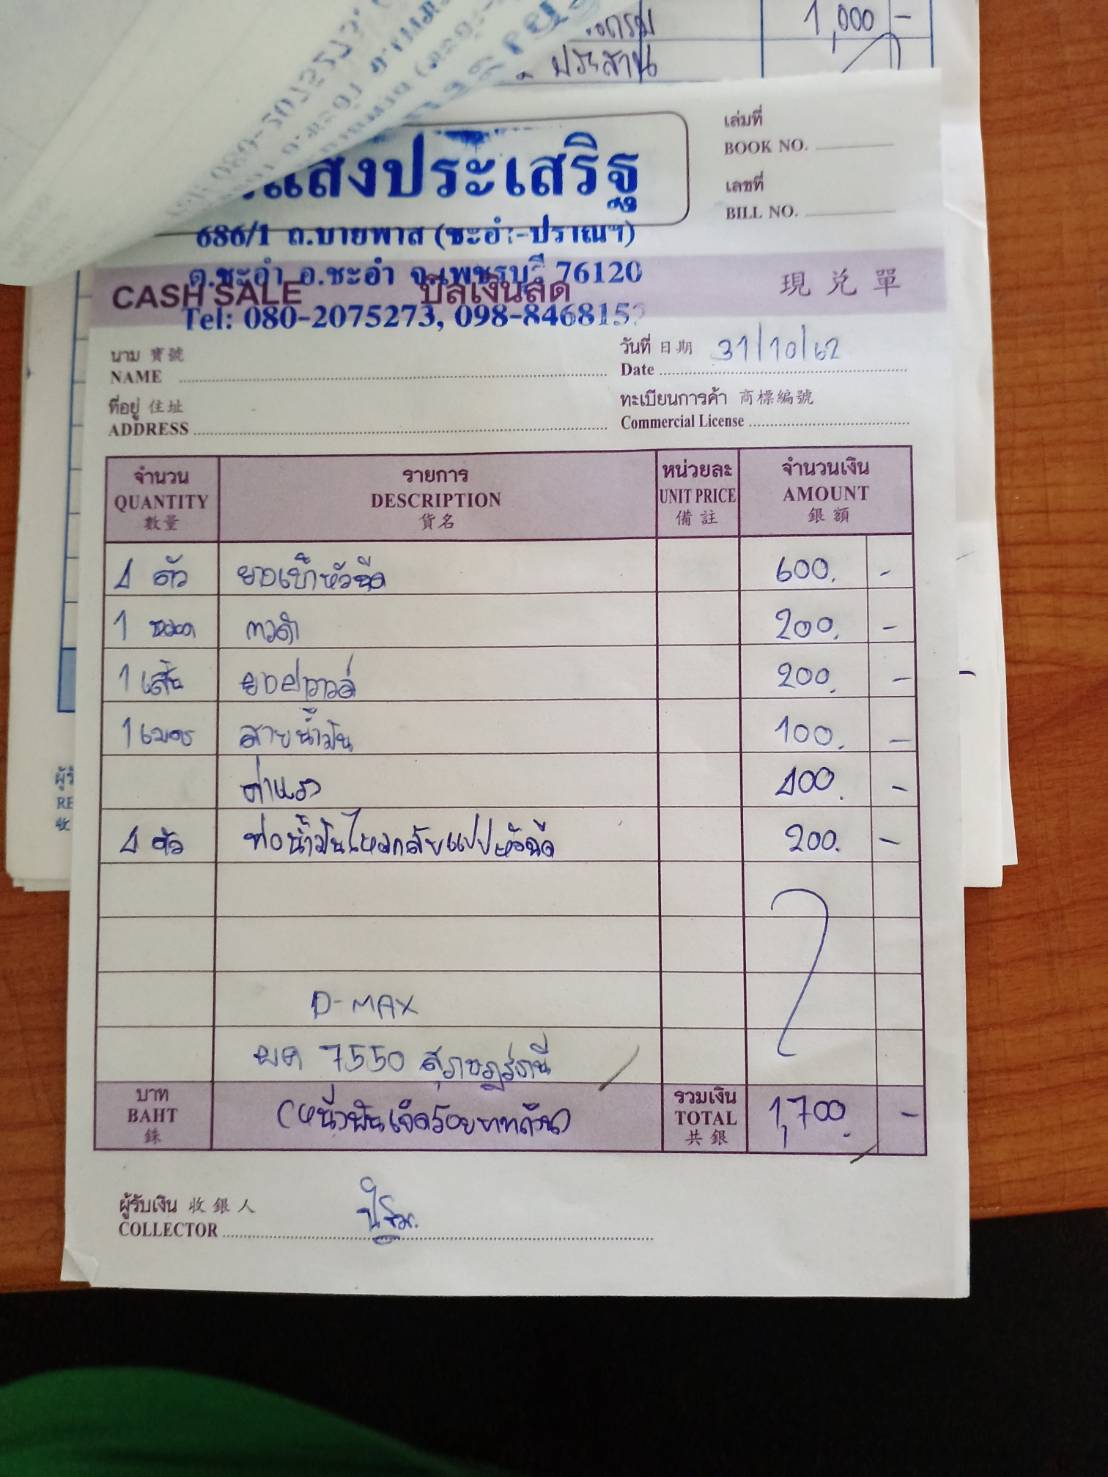 กรม 1,000 -
ประสาน
แสงประเสริฐ
686/1 ถ.บายพาส (ชะอำ-ปราณฯ)
ต.ชะอำ อ.ชะอำ จ.เพชรบุรี 76120
Tel: 080-2075273, 098-8468152
เล่มที่
BOOK NO.
เลขที่
BILL NO.
CASH SALE บิลเงินสด 現兌單
นาม 寶號
NAME
วันที่ 日期 31/10/62
Date
ที่อยู่ 住址
ADDRESS
ทะเบียนการค้า 商標編號
Commercial License
จำนวน รายการ หน่วยละ จำนวนเงิน
QUANTITY DESCRIPTION UNIT PRICE AMOUNT
數量 貨名 備註 銀額
4 ตัว ยางเบ้าหัวฉีด 600. -
1 หลอด กาวดำ 200. -
1 เส้น 200. -
1 เมตร สายน้ำมัน 100. -
ค่าแรง 400. -
4 ตัว ท่อน้ำมันไหลกลับแป๊ปหัวฉีด 200. -
D-MAX
ผค 7550 สุราษฎร์ธานี
บาท
BAHT
銖
(หนึ่งพันเจ็ดร้อยบาทถ้วน)
รวมเงิน
TOTAL
共銀
1,700. -
ผู้รับเงิน 收銀人
COLLECTOR